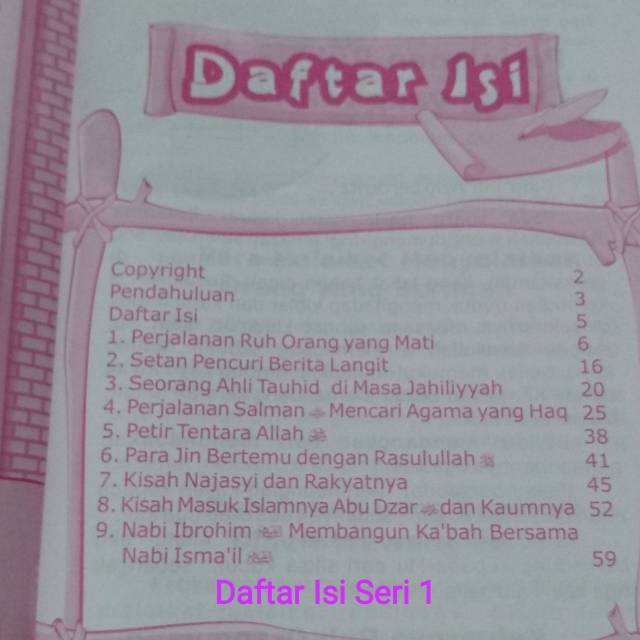 Daftar Isi
Copyright 2
Pendahuluan 3
Daftar Isi 5
1. Perjalanan Ruh Orang yang Mati 6
2. Setan Pencuri Berita Langit 16
3. Seorang Ahli Tauhid di Masa Jahiliyyah 20
4. Perjalanan Salman Mencari Agama yang Haq 25
5. Petir Tentara Allah 38
6. Para Jin Bertemu dengan Rasulullah ﷺ 41
7. Kisah Najasyi dan Rakyatnya 45
8. Kisah Masuk Islamnya Abu Dzar dan Kaumnya 52
9. Nabi Ibrohim Membangun Ka'bah Bersama
Nabi Isma'il 59
Daftar Isi Seri 1